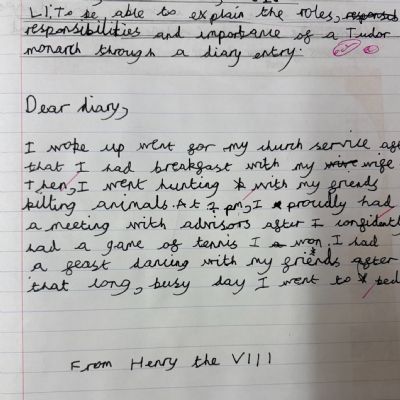 L.I: To be able to explain the roles,
responsibilities and importance of a Tudor
monarch through a diary entry.
Dear diary,
I woke up went for my church service aft
that I had breakfast with my wife
Then, I went hunting with my friends
killing animals. At 2 pm, I proudly had
a meeting with advisors after I confidentl
had a game of tennis I won. I had
a feast dancing with my friends after
that long, busy day I went to bed
From Henry the VIII